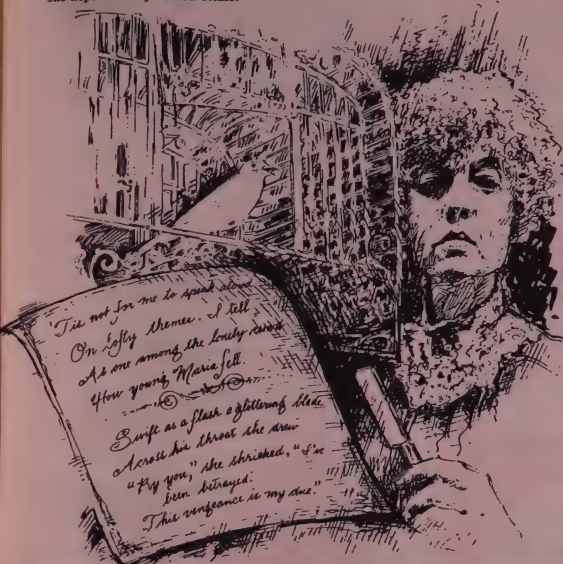 'Tis not for me to speak aloud
On lofty themes. I tell
As one among the lonely crowd
How young Maria fell.
Swift as a flash a glittering blade
Across his throat she drew
"By you," she shrieked, "I've
been betrayed.
This vengeance is my due."